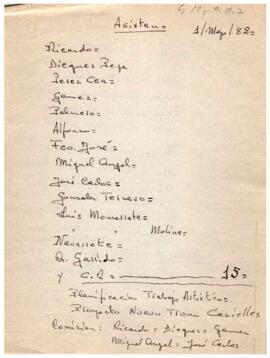 Asisten=
1/Mayo/82=
Ricardo=
Dieguez Pepe
Perez Cea=
Gamez=
Palmero=
Alfonso=
Fco. José=
Miguel Angel=
José Carlos=
Gonzalo Tenero=
Luis Mourellete=
" " Molina=
Navarrete=
Q. Garrido=
y C.R= 15=
Planificacion Trabajo Artístico=
Proyecto Nuevo Trono Casielles
Comision: Ricardo= Dieguez= Gamez
Miguel Angel= José Carlos